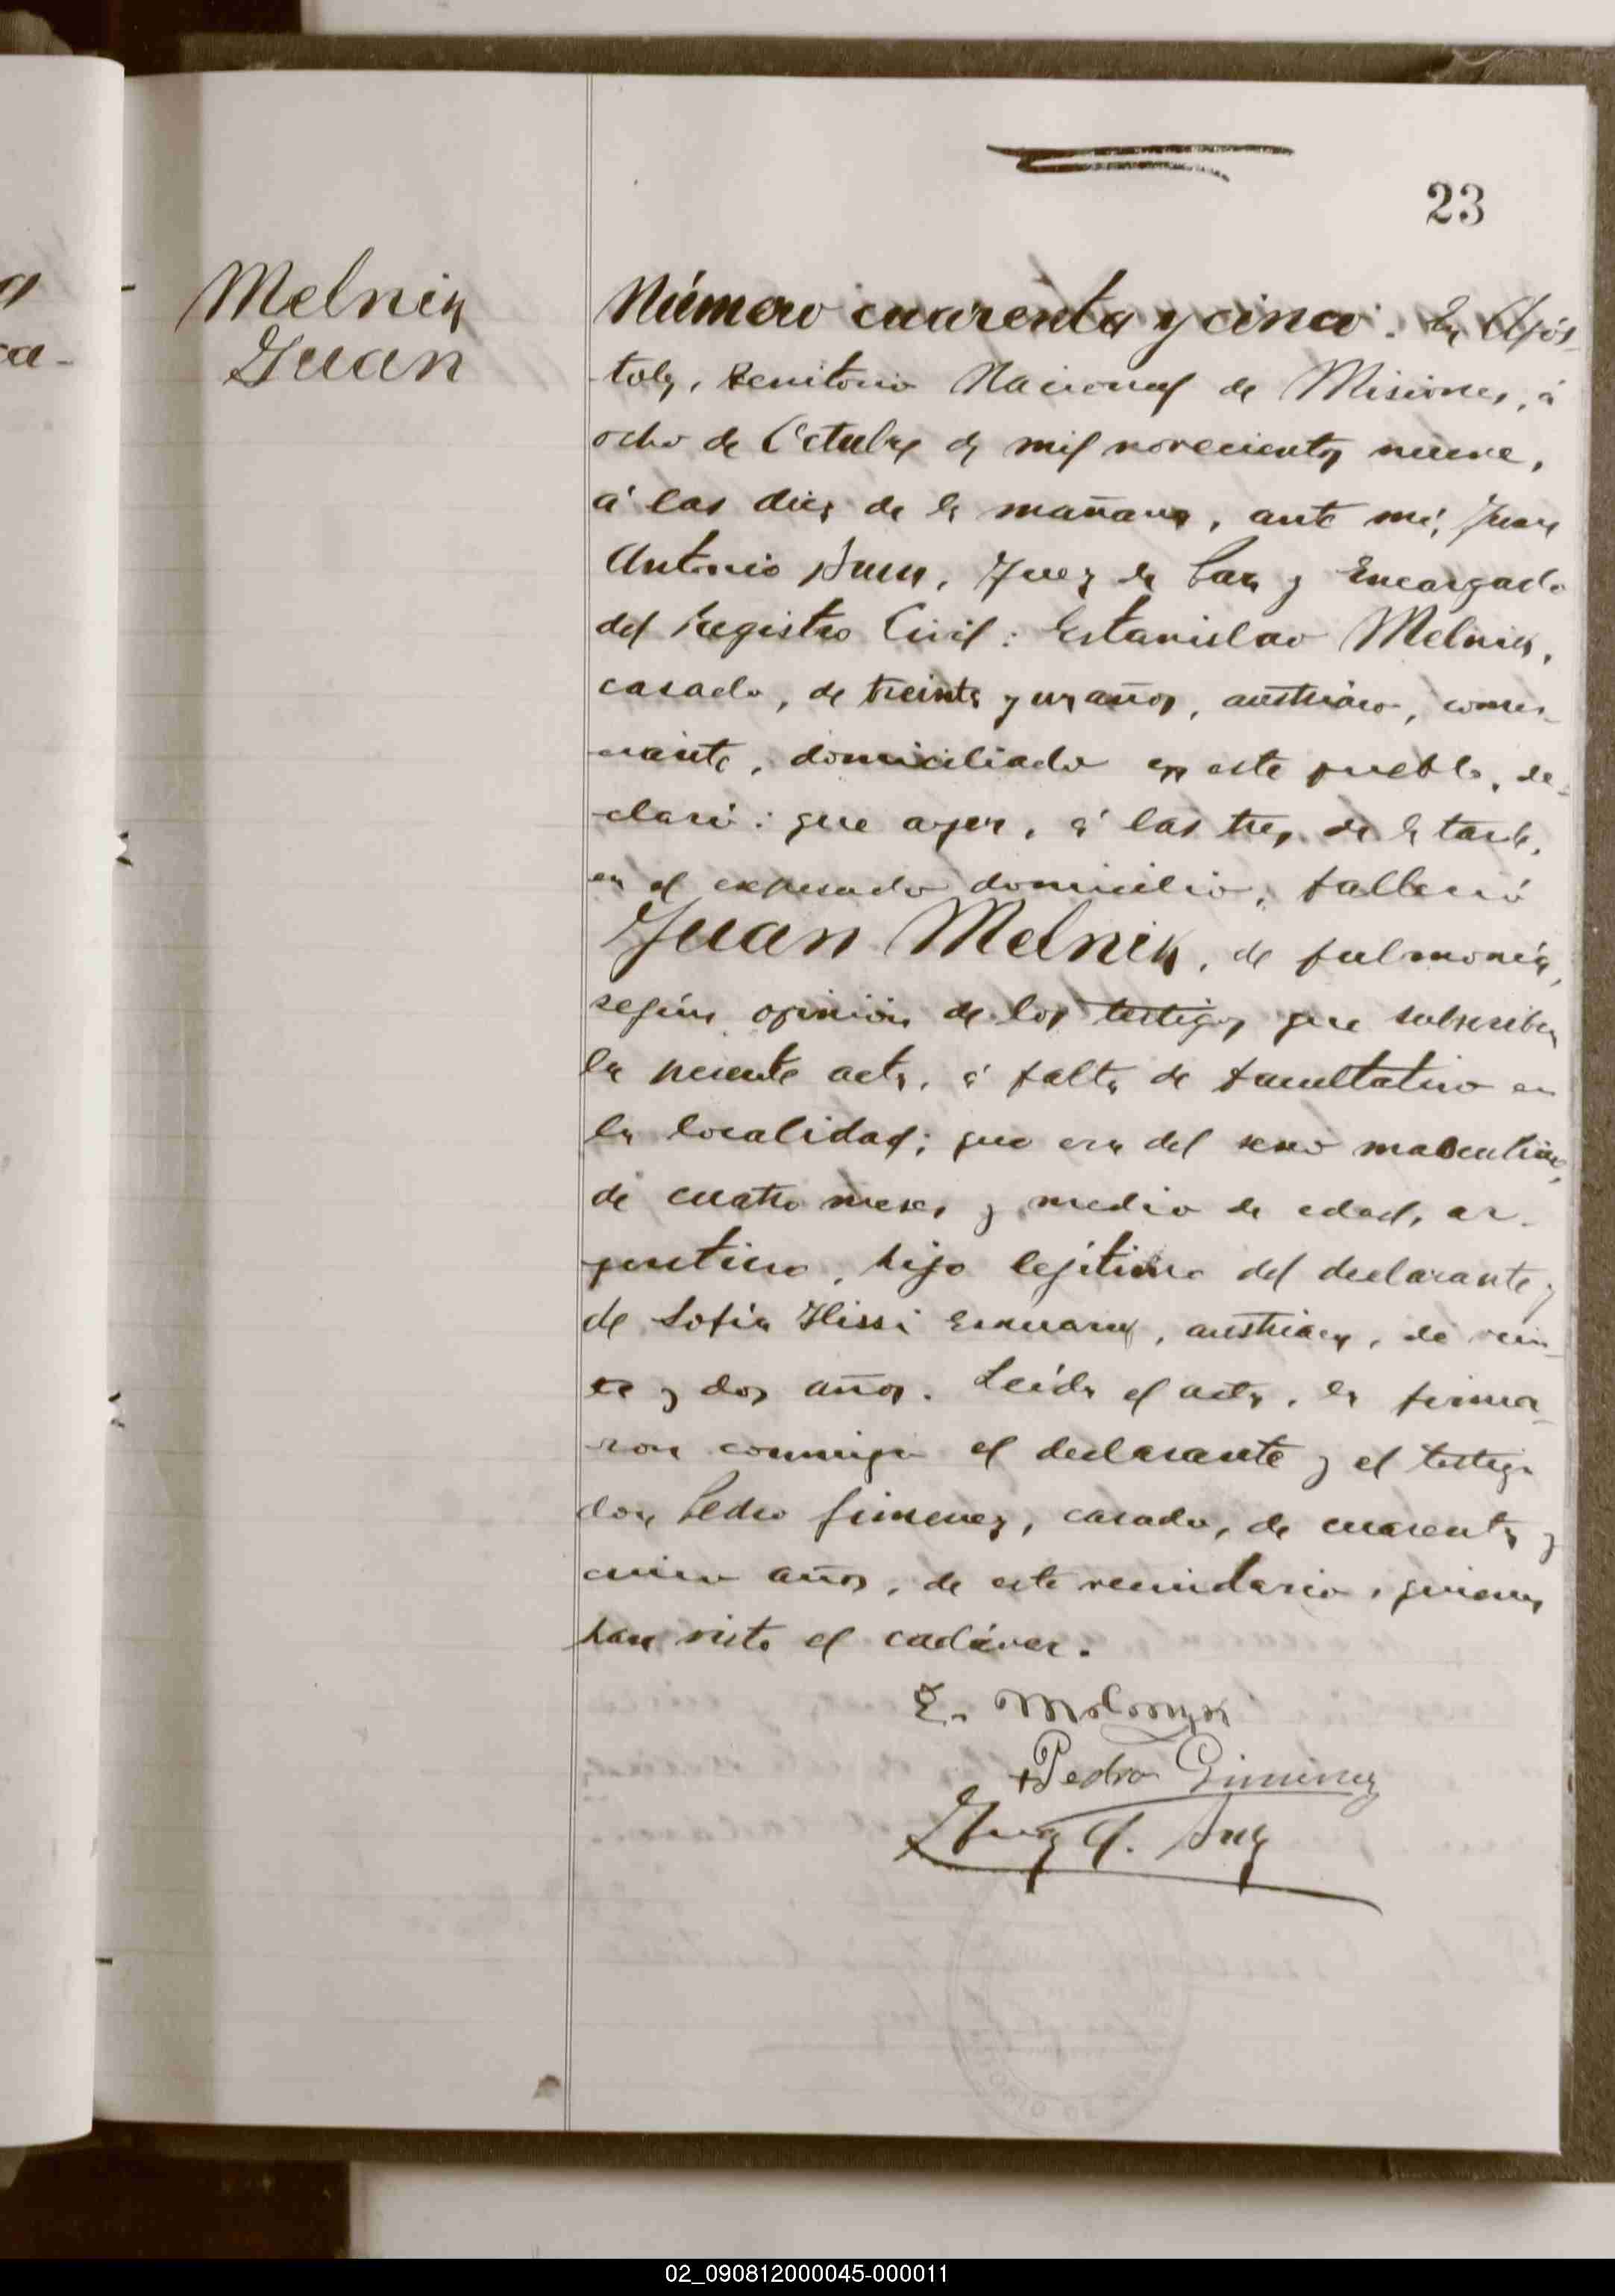 23
Melnik
Juan
Número cuarenta y cinco. En Após-
toles, Territorio Nacional de Misiones, á
ocho de Octubre de mil novecientos nueve,
á las diez de la mañana, ante mí, Juan
Antonio, Juez de Paz y Encargado
del Registro Civil: Estanislao Melnik,
casado, de treinta y un años, austriaco, comer-
ciante, domiciliado en este pueblo, de-
claró: que ayer, á las tres de la tarde,
en el expresado domicilio, falleció
Juan Melnik, de pulmonía,
según opinión de los testigos que subscriben
la presente acta, á falta de facultativo en
la localidad; que era del sexo masculino,
de cuatro meses y medio de edad, ar-
gentino, hijo legítimo del declarante y
de Sofía, austriaca, de vein-
te y dos años. Leída el acta, la firma-
ron conmigo el declarante y el testigo
don Pedro Gimenez, casado, de cuarenta y
cinco años, de este vecindario, quienes
han visto el cadáver.
E.
Pedro Giminez
Juan A.
02_090812000045-000011